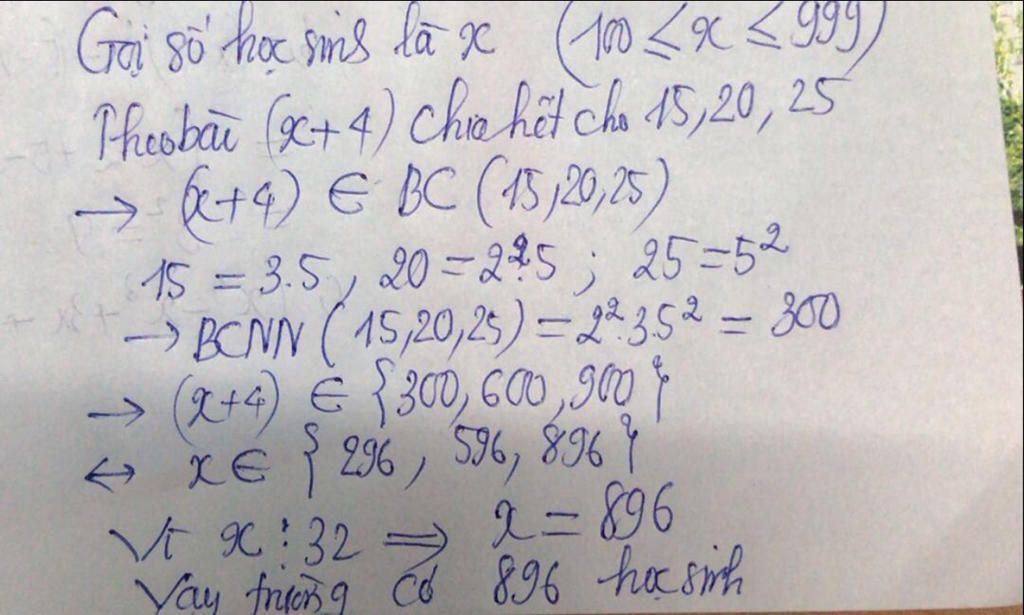 Gọi số học sinh là x (100 ≤ x ≤ 999)
Theo bài (x+4) chia hết cho 15, 20, 25
→ (x+4) ∈ BC (15,20,25)
15 = 3.5, 20 = 2².5 ; 25 = 5²
→ BCNN (15,20,25) = 2².3.5² = 300
→ (x+4) ∈ {300, 600, 900}
↔ x ∈ {296, 596, 896}
Vì x ⋮ 32 ⇒ x = 896
Vậy trường có 896 học sinh